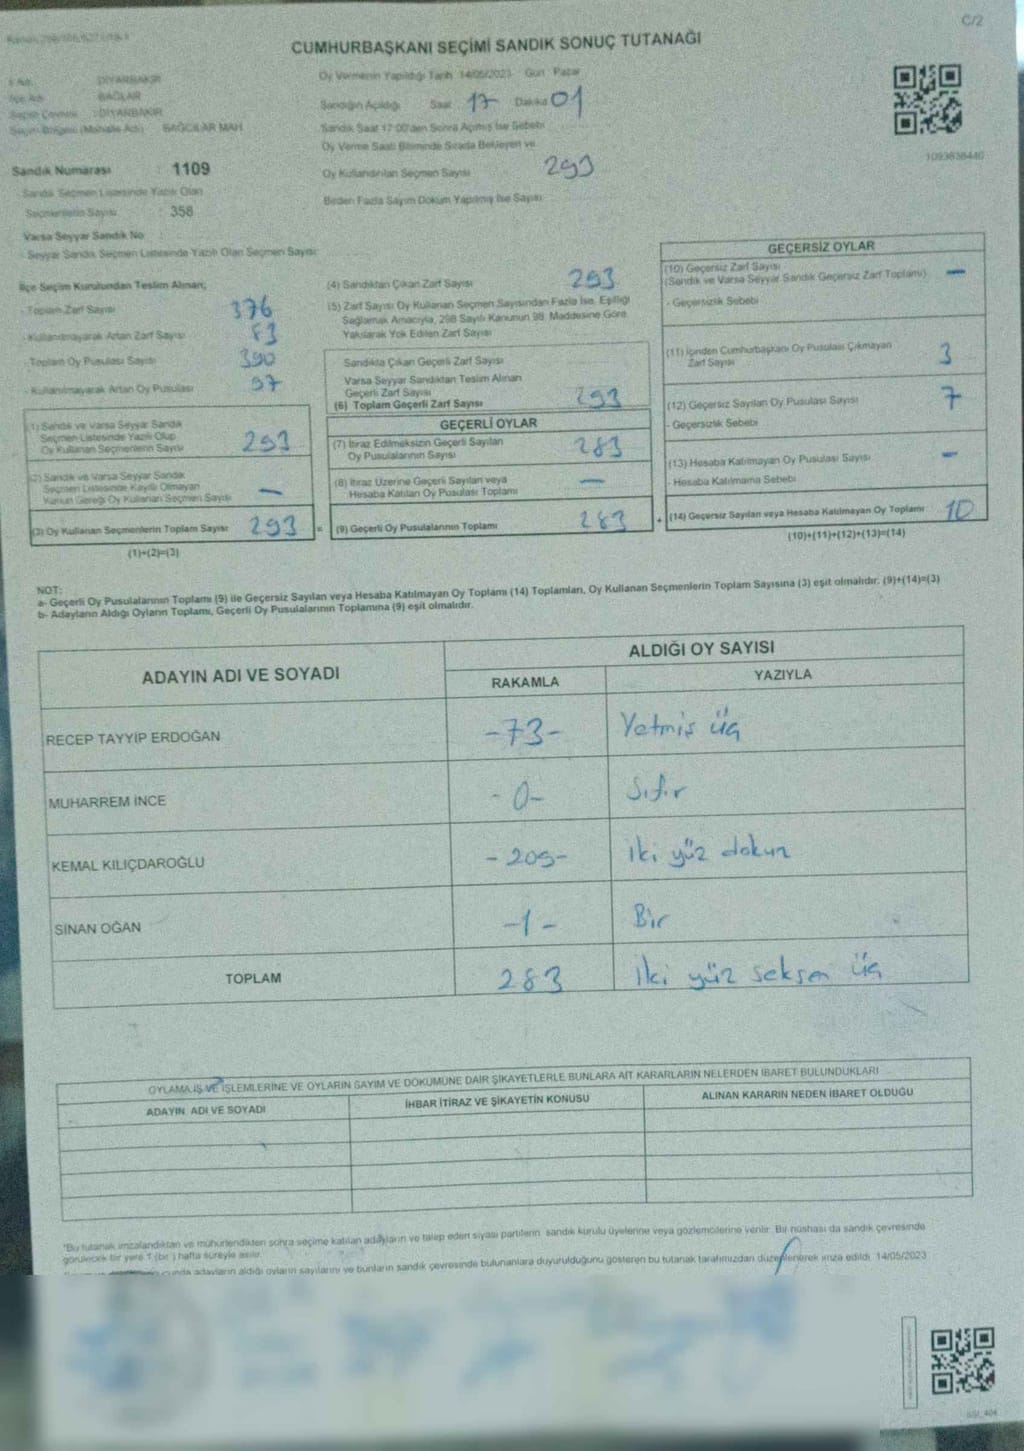 C/2
CUMHURBAŞKANI SEÇİMİ SANDIK SONUÇ TUTANAĞI
DİYARBAKIR
BAĞLAR
DİYARBAKIR
Seçim Bölgesi (Mahalle Adı) BAĞCILAR MAH
Sandık Numarası : 1109
Sandık Seçmen Listesinde Yazılı Olan
Seçmenlerin Sayısı : 358
Varsa Seyyar Sandık No :
Seyyar Sandık Seçmen Listesinde Yazılı Olan Seçmen Sayısı:
Oy Vermenin Yapıldığı Tarih 14/05/2023 Gün : Pazar
Sandığın Açıldığı Saat 17 Dakika 01
Sandık Saat 17:00'den Sonra Açılmış İse Sebebi
Oy Verme Saati Bitiminde Sırada Bekleyen ve
Oy Kullandırılan Seçmen Sayısı 293
Birden Fazla Sayım Döküm Yapılmış İse Sayısı
1093838440
İlçe Seçim Kurulundan Teslim Alınan;
- Toplam Zarf Sayısı 376
- Kullanılmayarak Artan Zarf Sayısı 83
- Toplam Oy Pusulası Sayısı 390
- Kullanılmayarak Artan Oy Pusulası 97
(1) Sandık ve Varsa Seyyar Sandık
Seçmen Listesinde Yazılı Olup
Oy Kullanan Seçmenlerin Sayısı 293
(2) Sandık ve Varsa Seyyar Sandık
Seçmen Listesinde Kayıtlı Olmayan
Kanun Gereği Oy Kullanan Seçmen Sayısı —
(3) Oy Kullanan Seçmenlerin Toplam Sayısı 293
(1)+(2)=(3)
(4) Sandıktan Çıkan Zarf Sayısı 293
(5) Zarf Sayısı Oy Kullanan Seçmen Sayısından Fazla İse, Eşitliği
Sağlamak Amacıyla, 298 Sayılı Kanunun 98. Maddesine Göre
Yakılarak Yok Edilen Zarf Sayısı
Sandıkta Çıkan Geçerli Zarf Sayısı
Varsa Seyyar Sandıktan Teslim Alınan
Geçerli Zarf Sayısı
(6) Toplam Geçerli Zarf Sayısı 293
GEÇERLİ OYLAR
(7) İtiraz Edilmeksizin Geçerli Sayılan
Oy Pusulalarının Sayısı 283
(8) İtiraz Üzerine Geçerli Sayılan veya
Hesaba Katılan Oy Pusulası Toplamı —
= (9) Geçerli Oy Pusulalarının Toplamı 283
GEÇERSİZ OYLAR
(10) Geçersiz Zarf Sayısı
(Sandık ve Varsa Seyyar Sandık Geçersiz Zarf Toplamı) —
- Geçersizlik Sebebi
(11) İçinden Cumhurbaşkanı Oy Pusulası Çıkmayan
Zarf Sayısı 3
(12) Geçersiz Sayılan Oy Pusulası Sayısı 7
- Geçersizlik Sebebi
(13) Hesaba Katılmayan Oy Pusulası Sayısı —
- Hesaba Katılmama Sebebi
+ (14) Geçersiz Sayılan veya Hesaba Katılmayan Oy Toplamı 10
(10)+(11)+(12)+(13)=(14)
NOT:
a- Geçerli Oy Pusulalarının Toplamı (9) ile Geçersiz Sayılan veya Hesaba Katılmayan Oy Toplamı (14) Toplamları, Oy Kullanan Seçmenlerin Toplam Sayısına (3) eşit olmalıdır. (9)+(14)=(3)
b- Adayların Aldığı Oyların Toplamı, Geçerli Oy Pusulalarının Toplamına (9) eşit olmalıdır.
ADAYIN ADI VE SOYADI ALDIĞI OY SAYISI
RAKAMLA YAZIYLA
RECEP TAYYİP ERDOĞAN -73- Yetmiş üç
MUHARREM İNCE -0- Sıfır
KEMAL KILIÇDAROĞLU -209- İki yüz dokuz
SİNAN OĞAN -1- Bir
TOPLAM 283 İki yüz seksen üç
OYLAMA İŞ VE İŞLEMLERİNE VE OYLARIN SAYIM VE DÖKÜMÜNE DAİR ŞİKAYETLERLE BUNLARA AİT KARARLARIN NELERDEN İBARET BULUNDUKLARI
ADAYIN ADI VE SOYADI İHBAR İTİRAZ VE ŞİKAYETİN KONUSU ALINAN KARARIN NEDEN İBARET OLDUĞU
*Bu tutanak imzalandıktan ve mühürlendikten sonra seçime katılan adayların ve talep eden siyasi partilerin sandık kurulu üyelerine veya gözlemcilerine verilir. Bir nüshası da sandık çevresinde
görülecek bir yere 1 (bir ) hafta süreyle asılır.
adayların aldığı oyların sayılarını ve bunların sandık çevresinde bulunanlara duyurulduğunu gösteren bu tutanak tarafımızdan düzenlenerek imza edildi. 14/05/2023